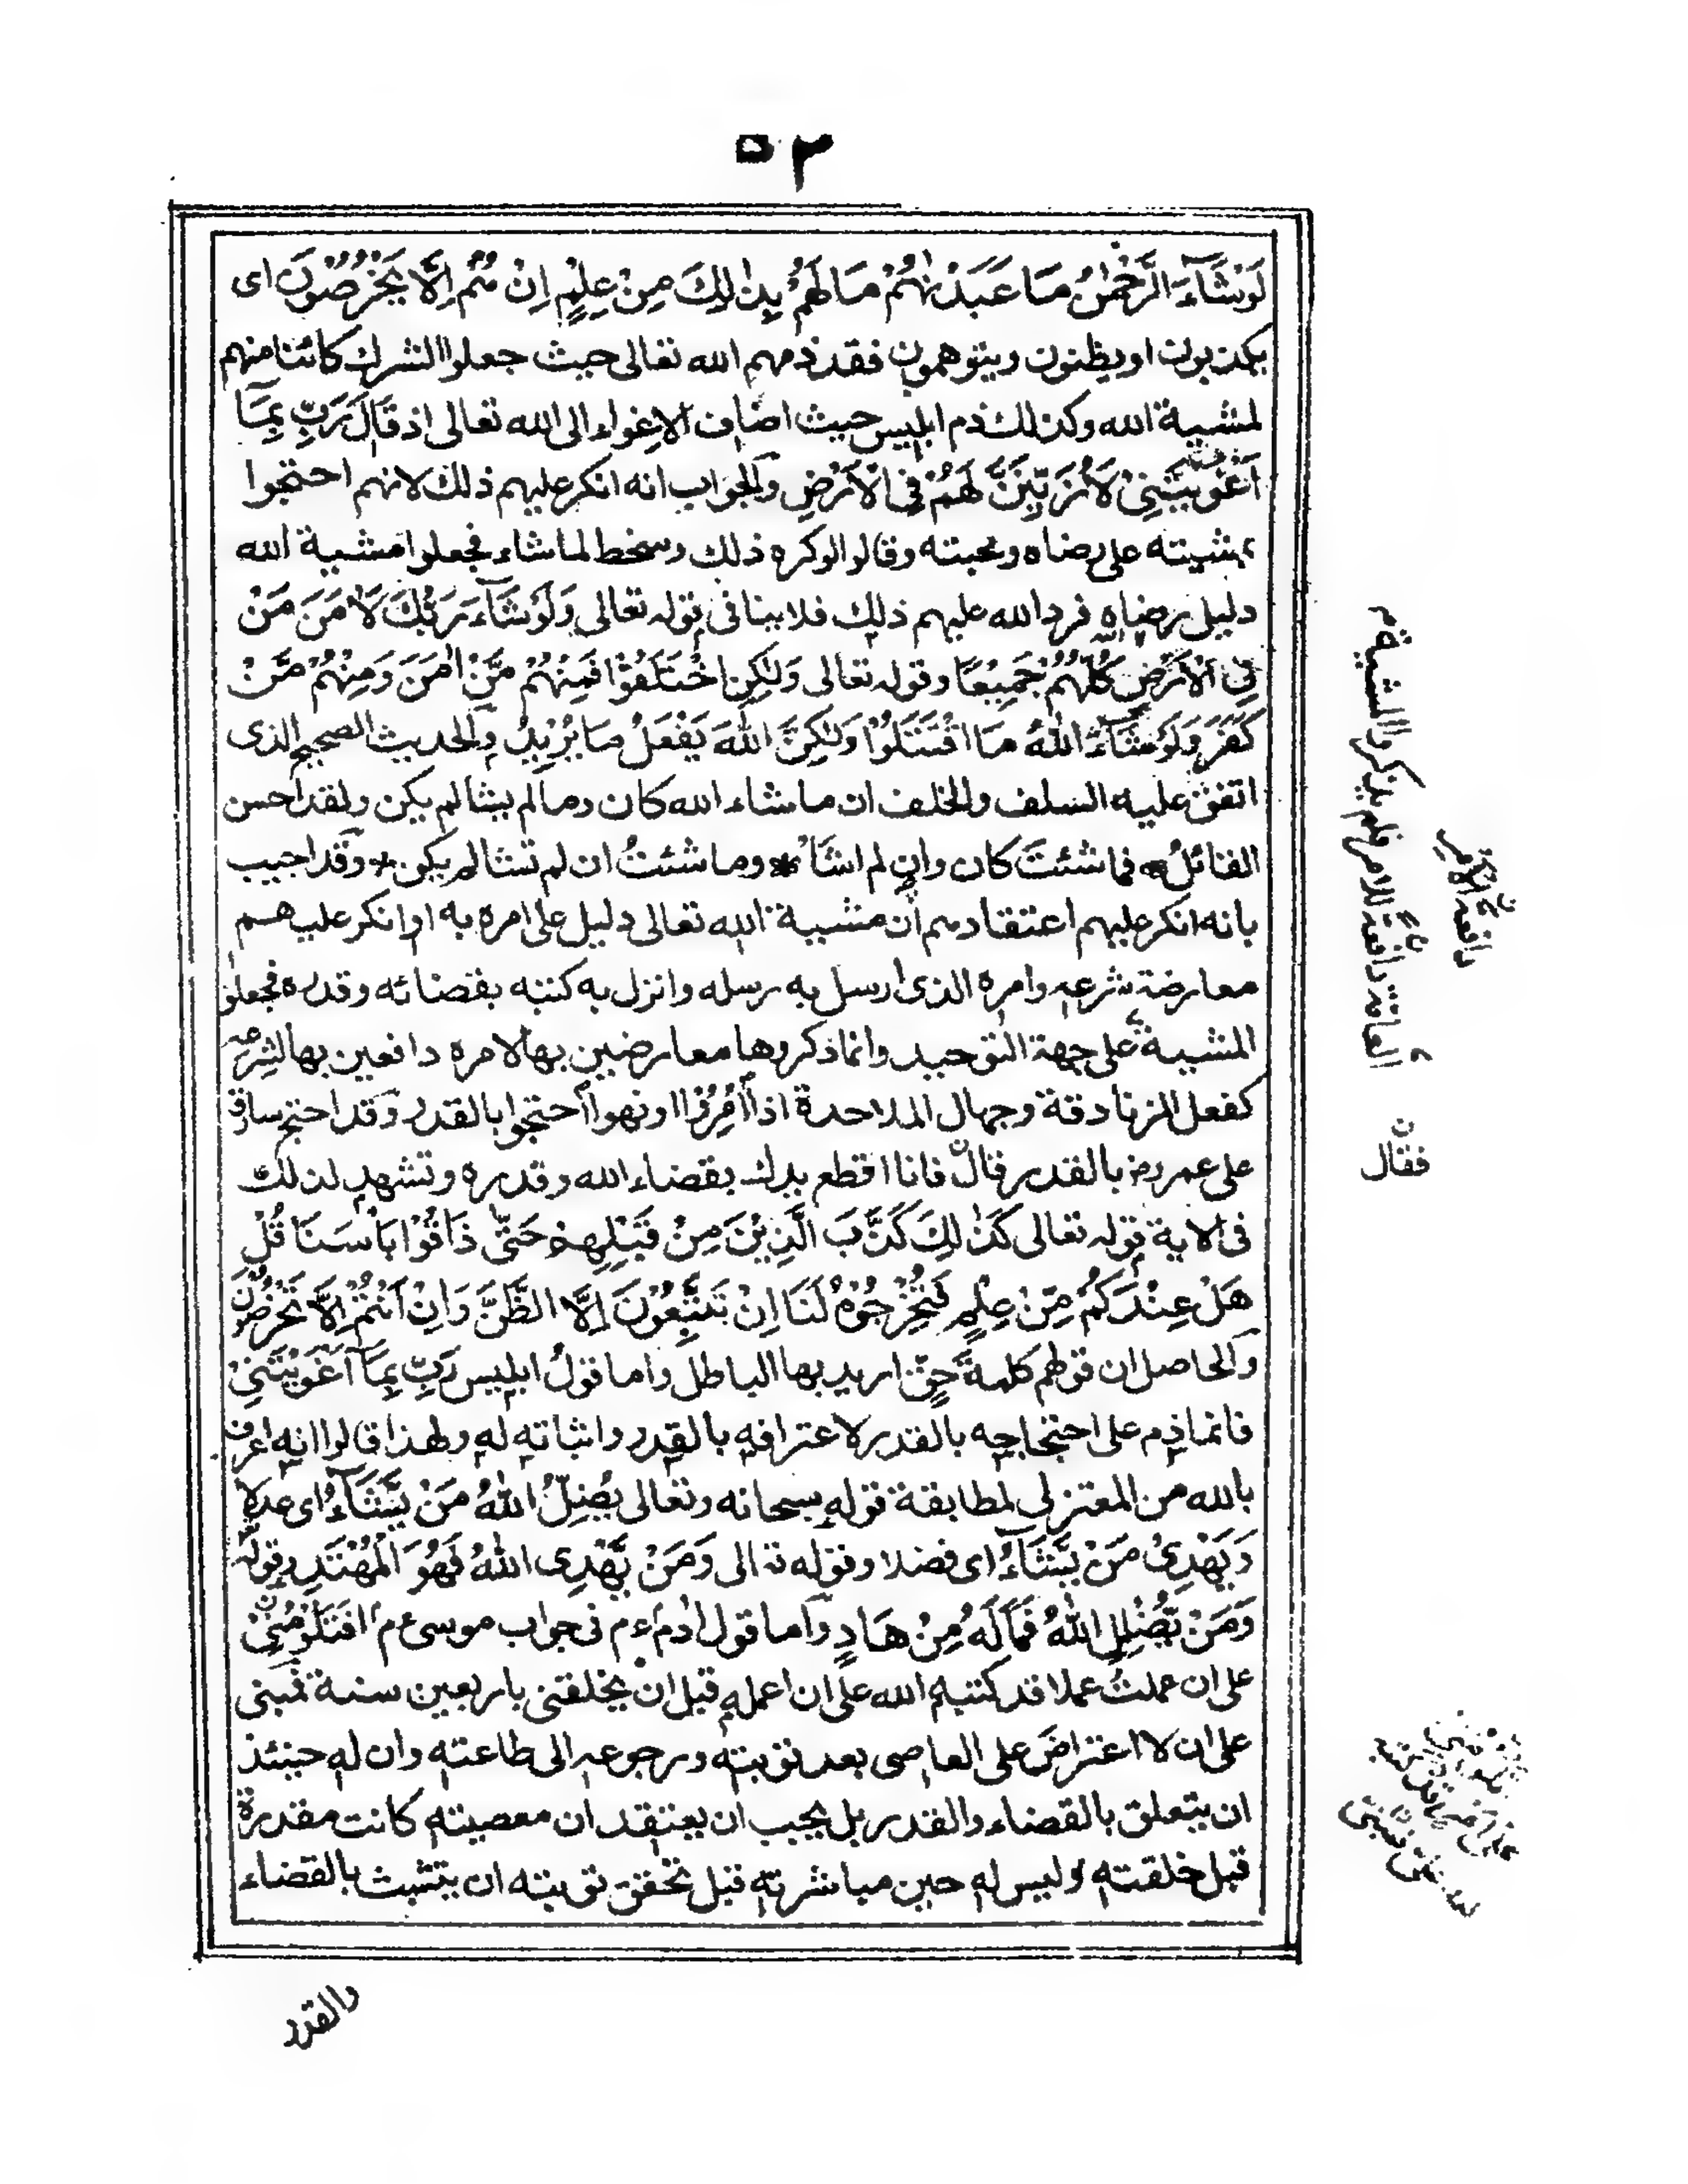 ٥٢
لَوْشَآءَ الرَّحْمٰنُ مَا عَبَدْنٰهُمْ مَا لَهُمْ بِذٰلِكَ مِنْ عِلْمٍ اِنْ هُمْ اِلَّا يَخْرُصُوْنَ اى
يكذبون او يظنون ويتوهمون فقد ذمهم الله تعالى حيث جعلوا الشرك كائنا منهم
لمشية الله وكذلك ذم ابليس حيث اضاف الاغواء الى الله تعالى اذ قَالَ رَبِّ بِمَآ
اَغْوَيْتَنِىْ لَاُزَيِّنَنَّ لَهُمْ فِى الْاَرْضِ والجواب انه انكر عليهم ذلك لانهم احتجوا
بمشيته على رضاه ومحبته وقالوا لو كره ذلك وسخط لما شاء فجعلوا مشية الله
دليل رضاه فرد الله عليهم ذلك فلا ينافى قوله تعالى وَلَوْ شَآءَ رَبُّكَ لَاٰمَنَ مَنْ
فِى الْاَرْضِ كُلُّهُمْ جَمِيْعًا وقوله تعالى وَلٰكِنِ اخْتَلَفُوْا فَمِنْهُمْ مَّنْ اٰمَنَ وَمِنْهُمْ مَّنْ
كَفَرَ وَلَوْ شَآءَ اللّٰهُ مَا اقْتَتَلُوْا وَلٰكِنَّ اللّٰهَ يَفْعَلُ مَا يُرِيْدُ والحديث الصحيح الذى
اتفق عليه السلف والخلف ان ما شاء الله كان وما لم يشا لم يكن ولقد احسن
القائل فما شئتَ كان وان لم اشأ * وما شئتُ ان لم تشا لم يكن * وقد اجيب
بانه انكر عليهم اعتقادهم ان مشية الله تعالى دليل على امره به او انكر عليهم
معارضة شرعه وامره الذى ارسل به رسله وانزل به كتبه بقضائه وقدره فجعلوا
المشية على جهة التوحيد وانما ذكروها معارضين بها لامره دافعين بها لشرعه
كفعل الزنادقة وجهال الملاحدة اذا اُمِرُوا او نهوا احتجوا بالقدر وقد احتج سارق
على عمر رض بالقدر فقال فانا اقطع يدك بقضاء الله وقدره وتشهد لذلك
فى الاية قوله تعالى كَذٰلِكَ كَذَّبَ الَّذِيْنَ مِنْ قَبْلِهِمْ حَتّٰى ذَاقُوْا بَاْسَنَا قُلْ
هَلْ عِنْدَكُمْ مِّنْ عِلْمٍ فَتُخْرِجُوْهُ لَنَا اِنْ تَتَّبِعُوْنَ اِلَّا الظَّنَّ وَاِنْ اَنْتُمْ اِلَّا تَخْرُصُوْنَ
والحاصل ان قولهم كلمة حق اريد بها الباطل واما قول ابليس رَبِّ بِمَآ اَغْوَيْتَنِىْ
فانما ذم على احتجاجه بالقدر لا عترافه بالقدر واثباته له ولهذا قالوا انه اعرف
بالله من المعتزلى لمطابقة قوله سبحانه وتعالى يُضِلُّ اللّٰهُ مَنْ يَّشَآءُ اى عدلا
وَيَهْدِىْ مَنْ يَّشَآءُ اى فضلا وقوله تعالى وَمَنْ يَّهْدِى اللّٰهُ فَهُوَ الْمُهْتَدِ وقوله
وَمَنْ يُّضْلِلِ اللّٰهُ فَمَا لَهُ مِنْ هَادٍ واما قول اٰدم ءم فى جواب موسى ءم افتلومنى
على ان عملتُ عملا قد كتبه الله على ان اعمله قبل ان يخلقنى باربعين سنة فمبنى
على ان لا اعتراض على العاصى بعد توبته ورجوعه الى طاعته وان له حينئذ
ان يتعلق بالقضاء والقدر بل يجب ان يعتقد ان معصيته كانت مقدرة
قبل خلقته وليس له حين مباشرته قبل تحقق توبته ان يتشبث بالقضاء
والقدر
العامة دافعة للامر فلم يذكروا المشية م
دافعة للامر
فقال ن